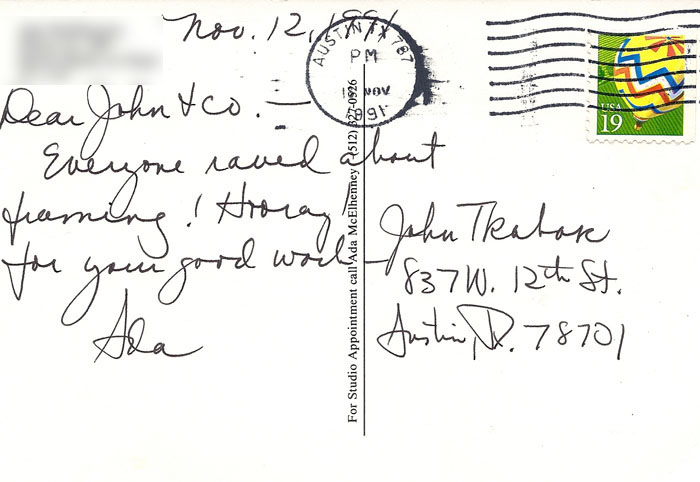 Nov. 12, 1991
Dear John & co. —
Everyone raved about
framing! Hooray!
for your good work —
Ada
For Studio Appointment call Ada McElhenney (512) 327-0526
AUSTIN TX 787
PM
NOV
1991
USA
19
John
837 W. 12th St.
Austin, Tx. 78701